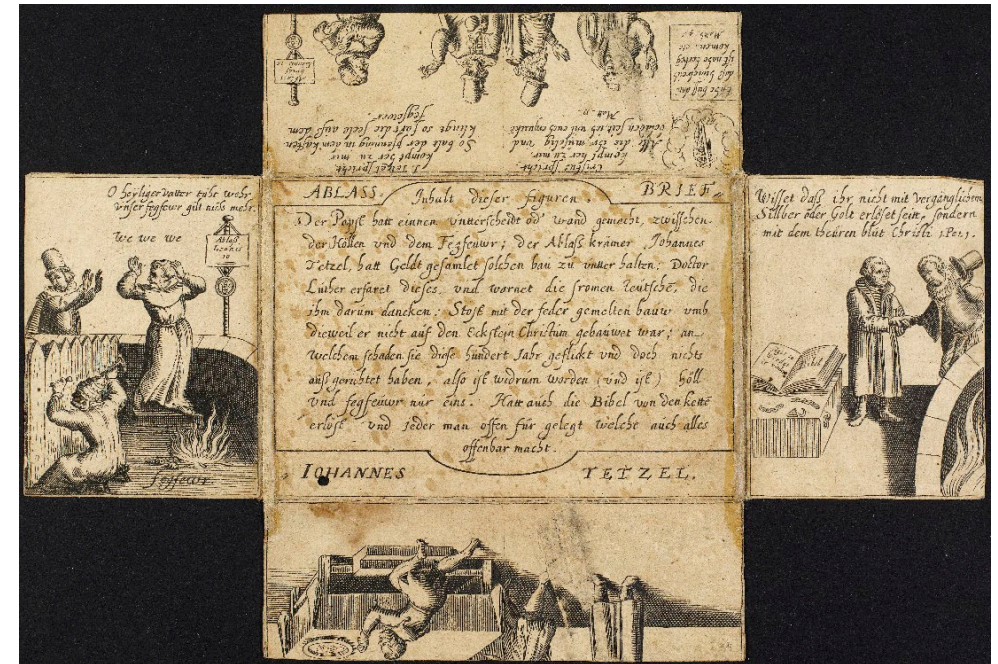 O heyliger vatter tuht wehr
vnser fegfeuwr gilt nichs mehr.
We we we
Ablaß
Fegfeuwr.
I. Tetzel spricht
kompt her zu mir
So bald der pfenning in dem kasten
klingt so fart die seele auß dem
fegfeuwr.
Cristus spricht
kompt her zu mir
Alle die ihr muselig vnd
beladen seit ich wil euch erquicken
Mat. 11
ABLASS.
Inhalt dieser figuren.
BRIEF.
Der Papst hatt einnen vntterscheidt od' wand gemacht, zwisschen
der Hóllen vnd dem Fegfeuwr; der Ablaß krämer, Johannes
Tetzel, hatt Geldt gesamlet solchen bau zu vntter halten; Doctor
Luther erfaret dieses, vnd warnet die fromen teutsche, die
ihm darum dancken; Stost mit der feder gemelten bauw vmb
dieweil er nicht auf den Eckstein Christum gebauwet war; an
welchem schaden sie diese hundert Jahr geflickt vnd doch nichts
auß gerichtet haben, also ist widrum worden (vnd ist) höll
vnd fegfeuwr nur eins. Hatt auch die Bibel von den kette
erlost vnd Jeder man offen für gelegt welche auch alles
offenbar macht.
IOHANNES TETZEL.
Wisset daß ihr nicht mit vergänglichem
Silber oder Golt erlöset seitt, sondern
mit dem theuren blut Christi. 1.Pet.1.